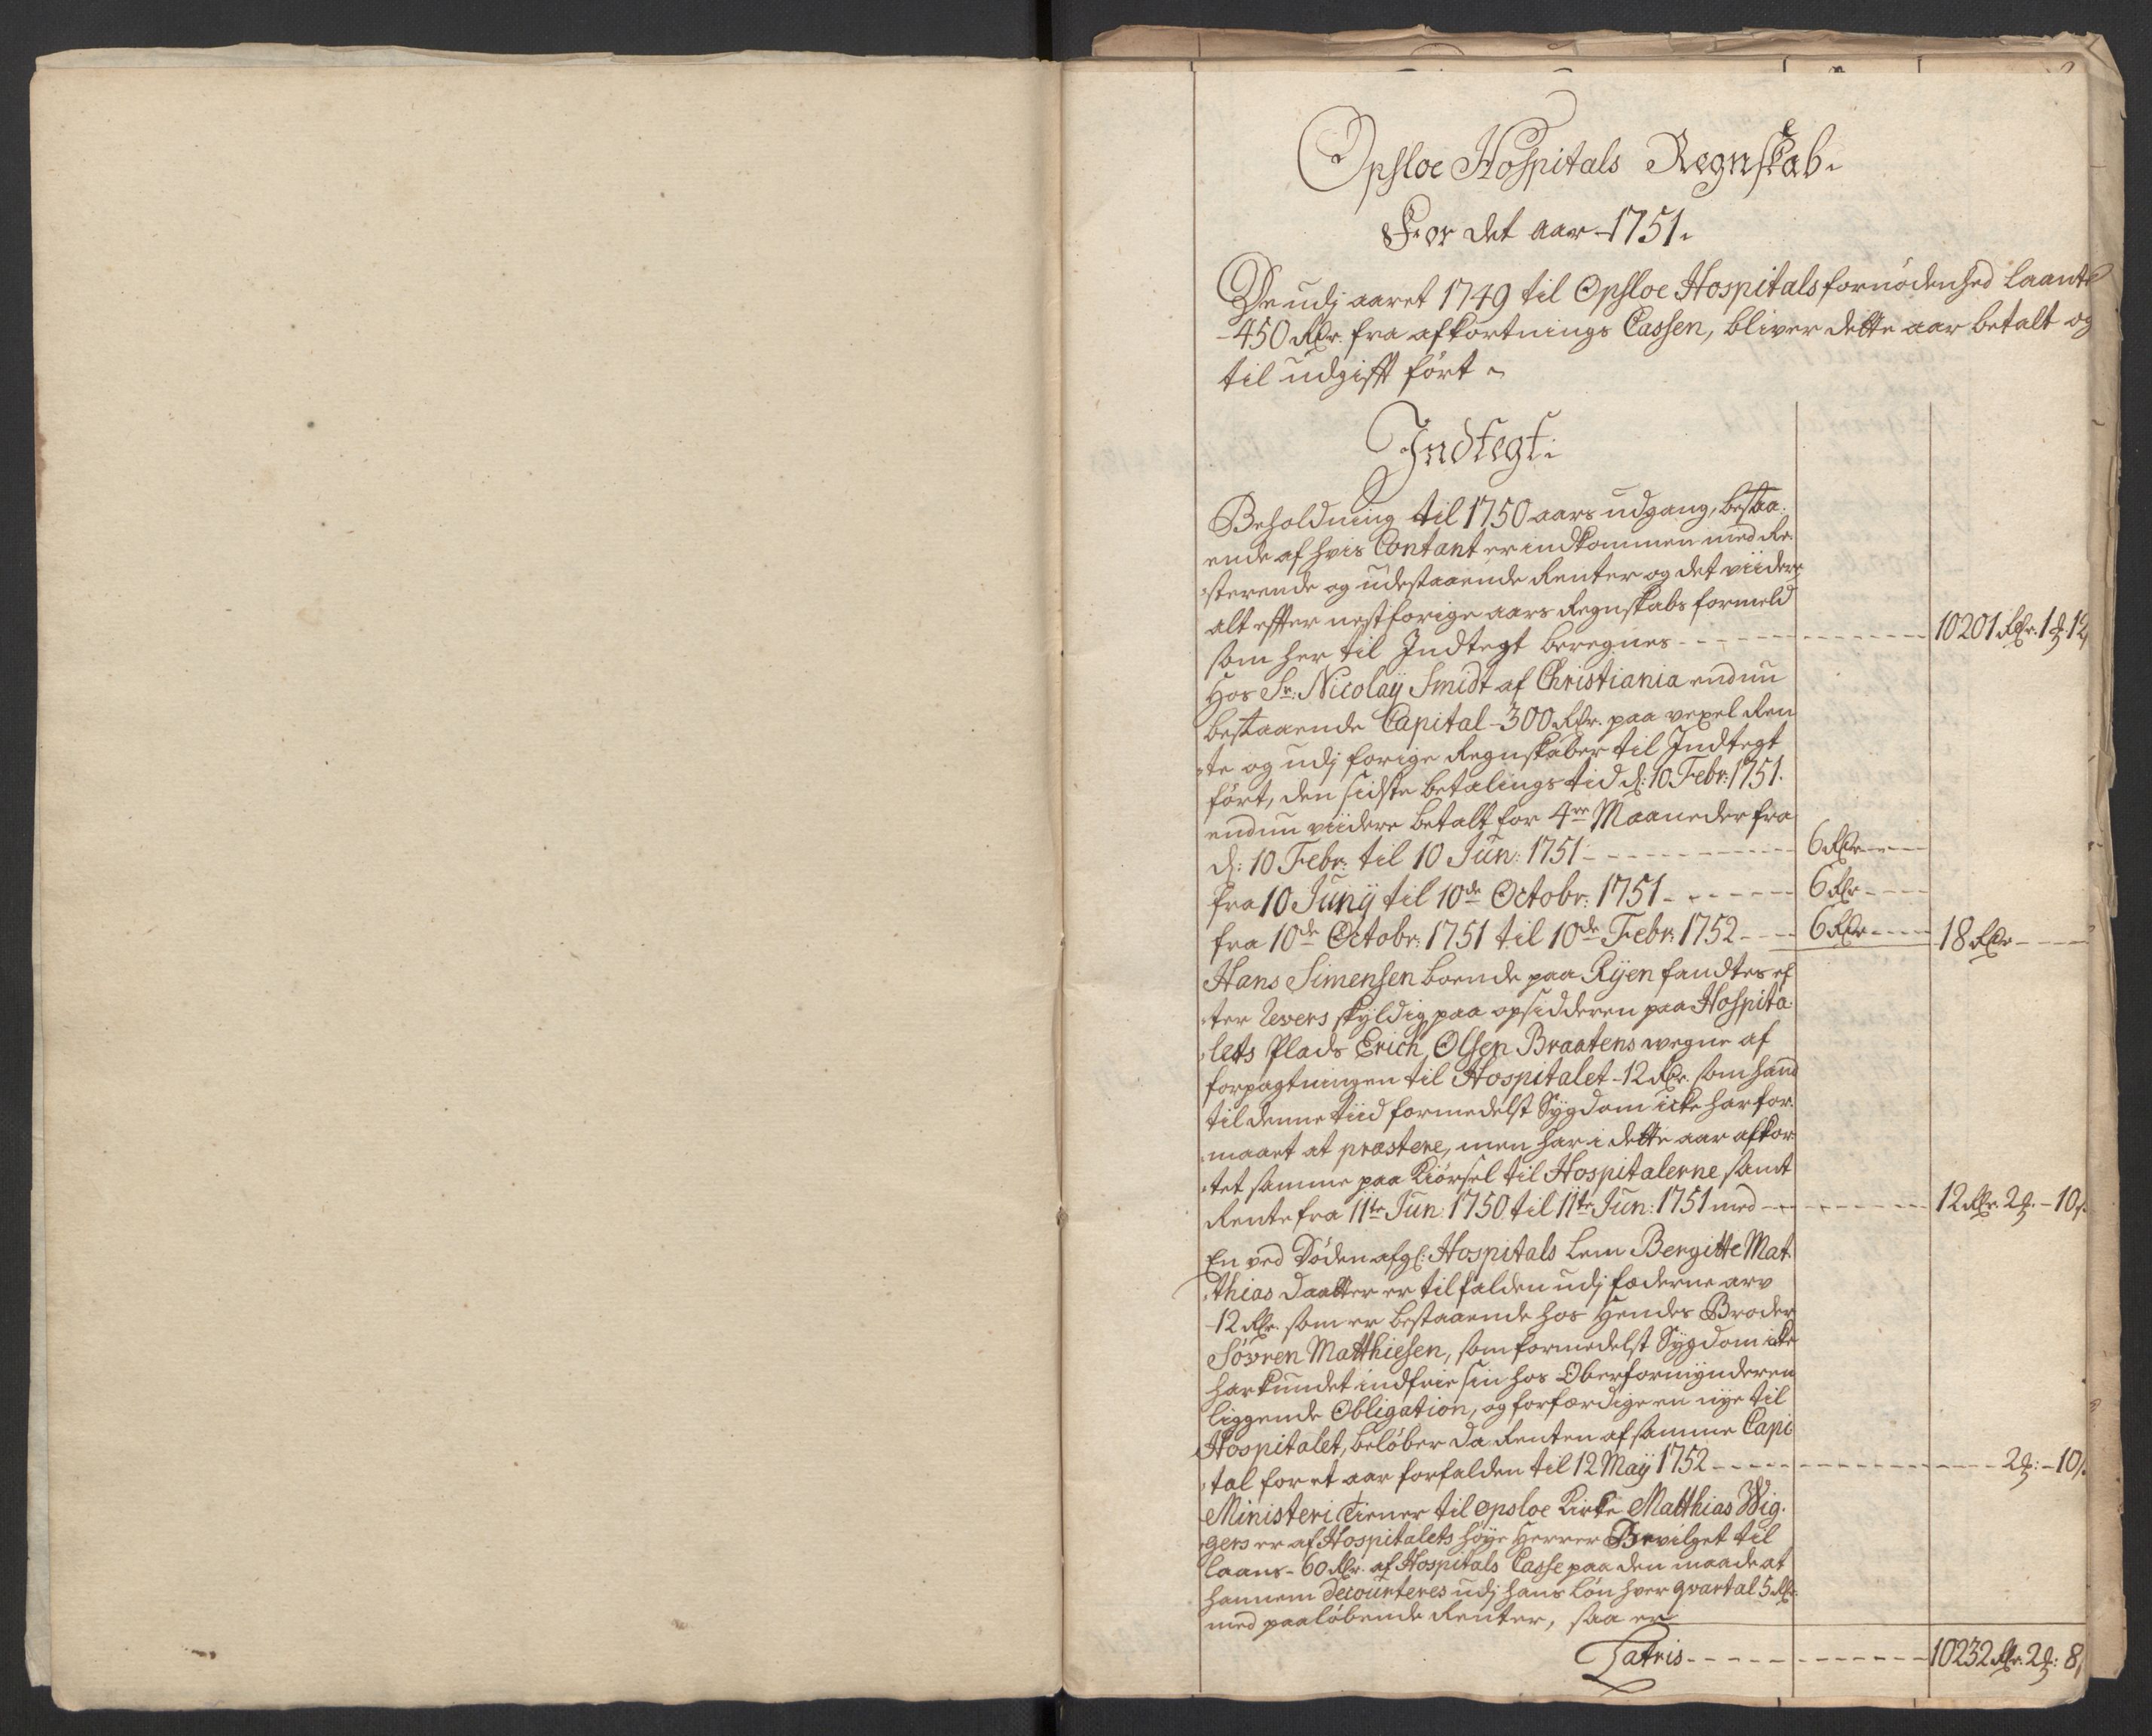 Opsloe Hospitals Regnskab.
For det aar 1751.
De udj aaret 1749 til Opsloe Hospitals fornödenhed laante
-450 Rdr. fra afkortnings Cassen, bliver dette aar betalt og
til udgifft fört
Indtegt.
Beholdning til 1750 aars udgang, bestaa:
ende af hvis Contant er indkommen med Re:
:sterende og udestaaende Renter og det viidere
alt effter nestforige aars Regnskabs formeld
som her til Indtegt beregnes - - - 10201 Rdr. 1 ꝺ 12
Hos Sr: Nicolaÿ Smidt af Christiania endnu
bestaaende Capital - 300 Rdr. paa vexel Ren
:te og udj forige Regnskaber til Indtegt
fört, den sidste betalings tid d: 10 Febr: 1751.
endnu viidere betalt for 4re Maaneder fra
d: 10 Febr: til 10 Jun: 1751 - - - 6 Rdr - - -
fra 10 Junÿ til 10de Octobr: 1751 - - - 6 Rdr - - -
fra 10de Octobr: 1751 til 10de Febr: 1752 - - - 6 Rdr - - - 18 Rdr - - -
Hans Simensen boende paa Rÿen fandtes ef
:ter Revers skyldig paa opsidderen paa Hospita:
:lets Plads Erich Olsen Braatens wegne af
forpagtningen til Hospitalet - 12 Rdr. som hand
til denne tiid formedelst Sygdom icke har for:
:maaet at præstere, men har i dette aar afkor:
:tet samme paa Kiörsel til Hospitalerne samt
Rente fra 11te Jun: 1750 til 11te Jun: 1751 med - - - 12 Rdr. 2 ꝺ. - 10 s.
En ved Döden afg: Hospitals Lem Bergitte Mat:
:thias Daatter er tilfalden udj fæderne arv
-12 Rdr. som er bestaaende hos hendes Broder
Sövren Matthiesen, som formedelst Sygdom icke
har kundet indfrie sin hos Oberformynderen
liggende Obligation, og forfærdige en nye til
Hospitalet, belöber da Renten af samme Capi
:tal for et aar forfalden til 12 Maÿ 1752 - - - 2 ꝺ: - 10 s.
Ministeri Tiener til opsloe Kirke Matthias Wig:
:gers er af Hospitalets höye Herrer Bevilget til
laans - 60 Rdr. af Hospitals Casse paa den maade at
hannem decourteres udj hans lön hver qvartal 5 Rdr.
med paalöbende Renter, saa er
Latris - - - 10232 Rdr. 2 ꝺ: 8